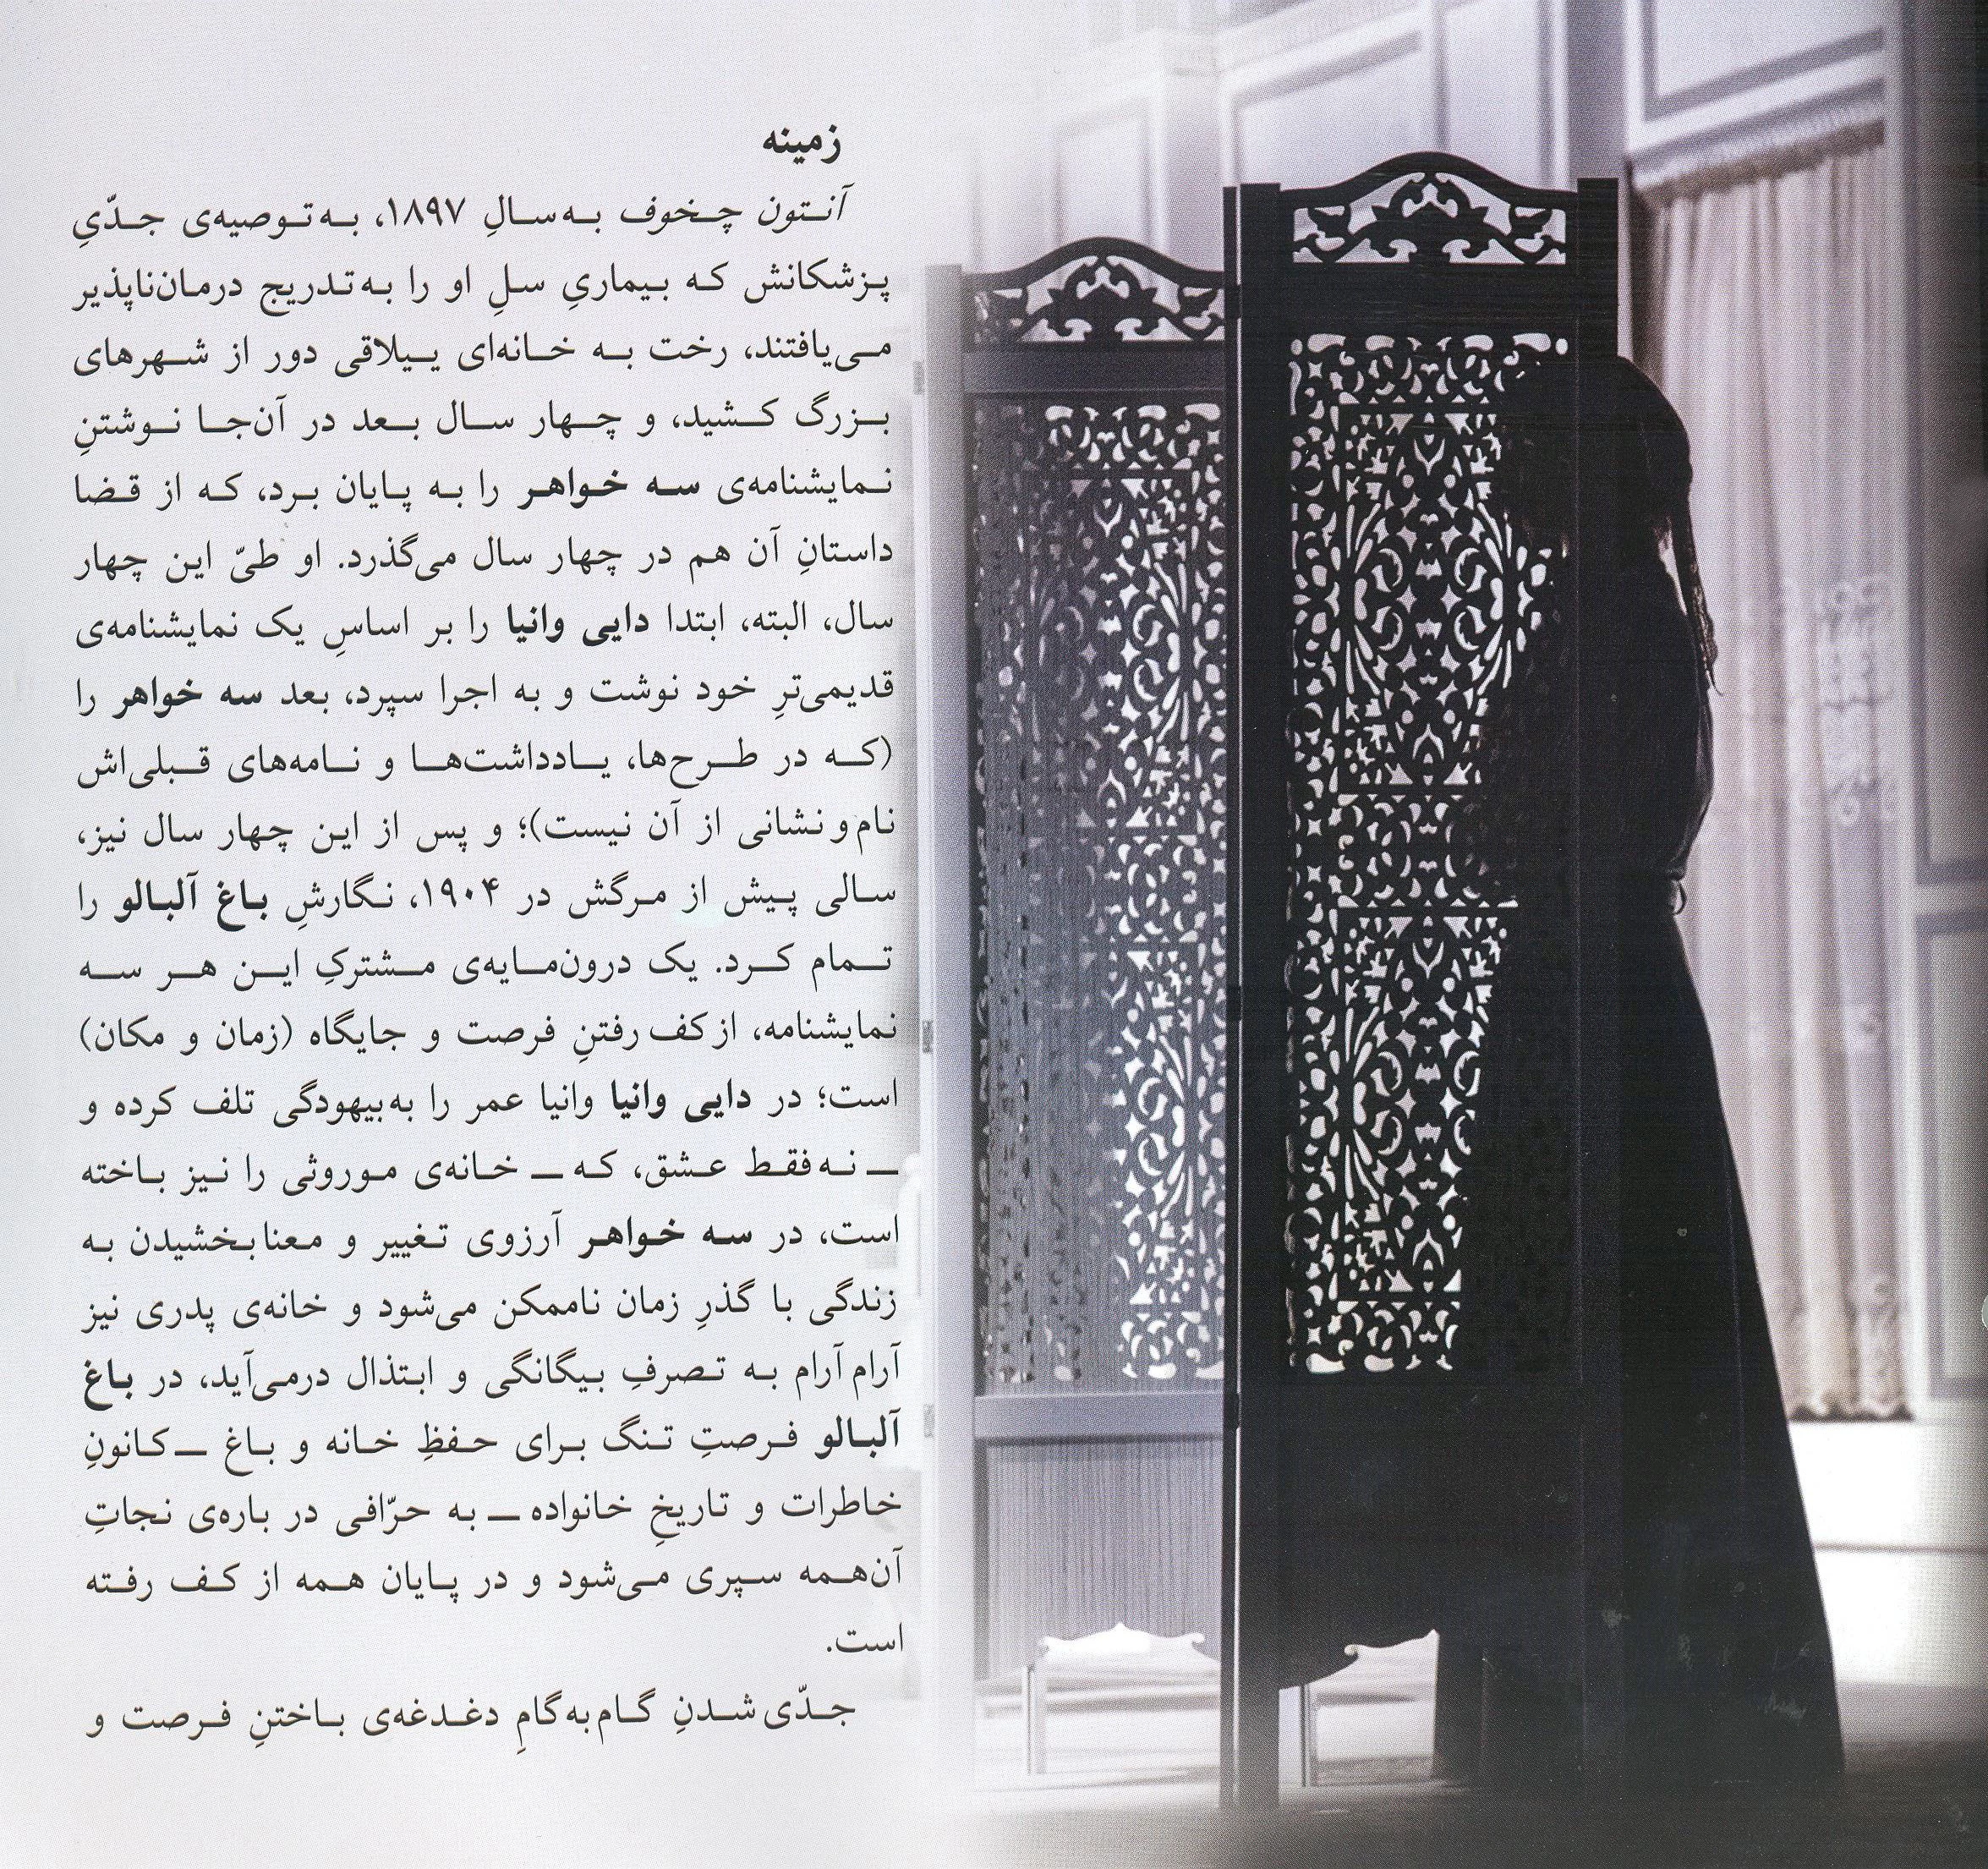 زمینه
آنتون چخوف به‌سالِ ۱۸۹۷، به‌توصیه‌ی جدّیِ
پزشکانش که بیماریِ سلِ او را به‌تدریج درمان‌ناپذیر
می‌یافتند، رخت به خانه‌ای ییلاقی دور از شهرهای
بزرگ کشید، و چهار سال بعد در آن‌جا نوشتنِ
نمایشنامه‌ی سه خواهر را به پایان برد، که از قضا
داستانِ آن هم در چهار سال می‌گذرد. او طیّ این چهار
سال، البته، ابتدا دایی وانیا را بر اساسِ یک نمایشنامه‌ی
قدیمی‌ترِ خود نوشت و به اجرا سپرد، بعد سه خواهر را
(که در طرح‌ها، یادداشت‌ها و نامه‌های قبلی‌اش
نام‌و‌نشانی از آن نیست)؛ و پس از این چهار سال نیز،
سالی پیش از مرگش در ۱۹۰۴، نگارشِ باغ آلبالو را
تمام کرد. یک درون‌مایه‌ی مشترکِ این هر سه
نمایشنامه، از‌کف‌رفتنِ فرصت و جایگاه (زمان و مکان)
است؛ در دایی وانیا وانیا عمر را به‌بیهودگی تلف کرده و
ــ نه‌فقط عشق، که ــ خانه‌ی موروثی را نیز باخته
است، در سه خواهر آرزوی تغییر و معنابخشیدن به
زندگی با گذرِ زمان ناممکن می‌شود و خانه‌ی پدری نیز
آرام‌آرام به تصرفِ بیگانگی و ابتذال درمی‌آید، در باغ
آلبالو فرصتِ تنگ برای حفظِ خانه و باغ ــ کانونِ
خاطرات و تاریخِ خانواده ــ به حرّافی در باره‌ی نجاتِ
آن‌همه سپری می‌شود و در پایان همه از کف رفته
است.
جدّی‌شدنِ گام‌به‌گامِ دغدغه‌ی باختنِ فرصت و